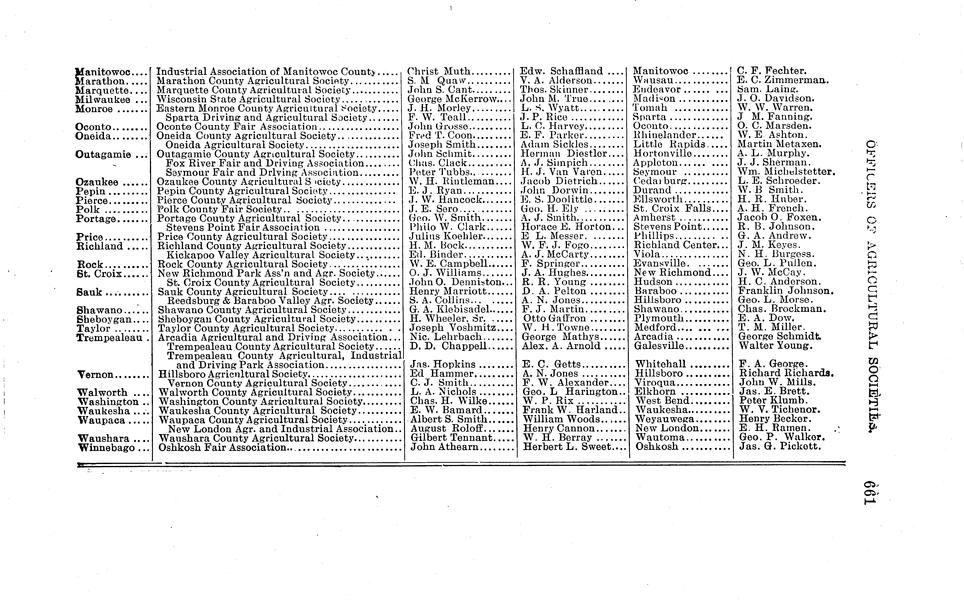 Manitowoc.... Industrial Association of Manitowoc County...... Christ Muth......... Edw. Schaffland .... Manitowoc ........ C. F. Fechter.
Marathon..... Marathon County Agricultural Society........... S. M Quaw......... V. A. Alderson...... Wausau........... E. C. Zimmerman.
Marquette.... Marquette County Agricultural Society.......... John S. Cant....... Thos. Skinner....... Endeavor ........ Sam. Laing.
Milwaukee ... Wisconsin State Agricultural Society........... George McKerrow.... John M. True....... Madison ......... J. O. Davidson.
Monroe ...... Eastern Monroe County Agricultural Society..... J. H. Morley........ L. S. Wyatt......... Tomah .......... W. W. Warren.
Sparta Driving and Agricultural Society....... F. W. Teall......... J. P. Rice ......... Sparta .......... J M. Fanning.
Oconto ...... Oconto County Fair Association................ John Grosse........ L. C. Harvey....... Oconto........... O. C. Marsden.
Oneida....... Oneida County Agricultural Society............ Fred T. Coon....... E. F. Parker........ Rhinelander ..... W. E. Ashton.
Oneida Agricultural Society................... Joseph Smith....... Adam Sickles....... Little Rapids..... Martin Metaxen.
Outagamie ... Outagamie County Agricultural Society......... John Schmit........ Herman Diestler.... Hortonville...... A. L. Murphy.
Fox River Fair and Driving Association ....... Chas. Clack........ A. J. Simpich...... Appleton......... J. J. Sherman.
Seymour Fair and Driving Association.......... Peter Tubbs........ H. J. Van Varen.... Seymour ......... Wm. Michelstetter.
Ozaukee ..... Ozaukee County Agricultural Society........... W. H. Rintleman.... Jacob Dietrich..... Cedarburg....... L. E. Schroeder.
Pepin ....... Pepin County Agricultural Society............. E. J. Ryan......... John Dorwin........ Durand .......... W. B Smith.
Pierce....... Pierce County Agricultural Society............ J. W. Hancock...... E. S. Doolittle.... Ellsworth........ H. R. Huber.
Polk ........ Polk County Fair Society...................... J. E. Sero......... Geo. H. Ely ....... St. Croix Falls.... A. H. French.
Portage...... Portage County Agricultural Society........... Geo. W. Smith...... A. J. Smith........ Amherst ......... Jacob O. Foxen.
Stevens Point Fair Association ............... Philo W. Clark..... Horace E. Horton... Stevens Point.... R. B. Johnson.
Price........ Price County Agricultural Society............. Julius Koehler..... E L. Messer........ Phillips......... G. A. Andrew.
Richland .... Richland County Agricultural Society.......... H. M. Bock......... W. F. J. Fogo...... Richland Center... J. M. Keyes.
Kickapoo Valley Agricultural Society.......... Ed. Binder......... A. J. McCarty...... Viola............ N. H. Burgess.
Rock......... Rock County Agricultural Society.............. W. E. Campbell..... F. Springer........ Evansville. ..... Geo. L. Pullen.
St. Croix.... New Richmond Park Ass'n and Agr. Society...... O. J. Williams..... J. A. Hughes....... New Richmond.... J. W. McCay.
St. Croix County Agricultural Society......... John O. Denniston... R. R. Young ....... Hudson .......... H. C. Anderson.
Sauk ........ Sauk County Agricultural Society.............. Henry Marriott..... D. A. Pelton ...... Baraboo ......... Franklin Johnson.
Reedsburg & Baraboo Valley Agr. Society....... S. A. Collins...... A. N. Jones........ Hillsboro ....... Geo. L. Morse.
Shawano...... Shawano County Agricultural Society........... G. A. Klebisadel... F. J. Martin....... Shawano.......... Chas. Brockman.
Sheboygan.... Sheboygan County Agricultural Society......... H. Wheeler, Sr. ... Otto Gaffron ...... Plymouth......... E. A. Dow.
Taylor ...... Taylor County Agricultural Society............ Joseph Voshmitz.... W. H. Towne........ Medford.......... T. M. Miller.
Trempealeau . Arcadia Agricultural and Driving Association... Nic. Lehrbach...... George Mathys...... Arcadia ......... George Schmidt.
Trempealeau County Agricultural Society....... D. D. Chappell..... Alex. A. Arnold ... Galesville....... Walter Young.
Trempealeau County Agricultural, Industrial
and Driving Park Association.................. Jas. Hopkins....... E. C. Getts........ Whitehall ....... F. A. George.
Vernon....... Hillsboro Agricultural Society................ Ed Hammer.......... A. N. Jones ....... Hillsboro ....... Richard Richards.
Vernon County Agricultural Society............ C. J. Smith........ F. W. Alexander.... Viroqua.......... John W. Mills.
Walworth .... Walworth County Agricultural Society.......... L. A. Nichols...... Geo. L Harington... Elkhorn ......... Jas. E. Brett.
Washington .. Washington County Agricultural Society........ Chas. H. Wilke..... W. P. Rix ......... West Bend....... Peter Klumb.
Waukesha .... Waukesha County Agricultural Society.......... E. W. Bamard....... Frank W. Harland... Waukesha......... W. V. Tichenor.
Waupaca ..... Waupaca County Agricultural Society........... Albert S. Smith.... William Woods...... Weyauwega ....... Henry Becker.
New London Agr. and Industrial Association.... August Roloff...... Henry Cannon....... New London...... E. H. Ramen.
Waushara .... Waushara County Agricultural Society.......... Gilbert Tennant.... W. H. Berray ...... Wautoma ......... Geo. P. Walker.
Winnebago ... Oshkosh Fair Association...................... John Athearn....... Herbert L. Sweet... Oshkosh ......... Jas. G. Pickett.
OFFICERS OF AGRICULTURAL SOCIETIES.
661